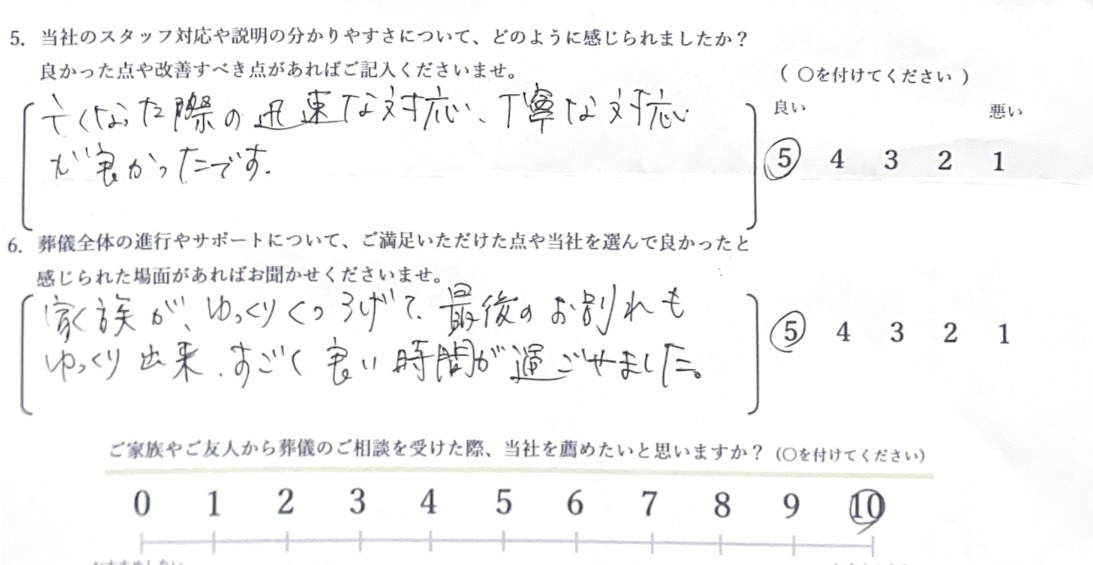 5. 当社のスタッフ対応や説明の分かりやすさについて、どのように感じられましたか？
良かった点や改善すべき点があればご記入くださいませ。
（ ○を付けてください ）
良い 悪い
亡くなった際の迅速な対応、丁寧な対応
が良かったです.
5 4 3 2 1
6. 葬儀全体の進行やサポートについて、ご満足いただけた点や当社を選んで良かったと
感じられた場面があればお聞かせくださいませ。
家族が、ゆっくりくつろげて、最後のお別れも
ゆっくり出来、すごく良い時間が過ごせました。
5 4 3 2 1
ご家族やご友人から葬儀のご相談を受けた際、当社を薦めたいと思いますか？（○を付けてください）
0 1 2 3 4 5 6 7 8 9 10